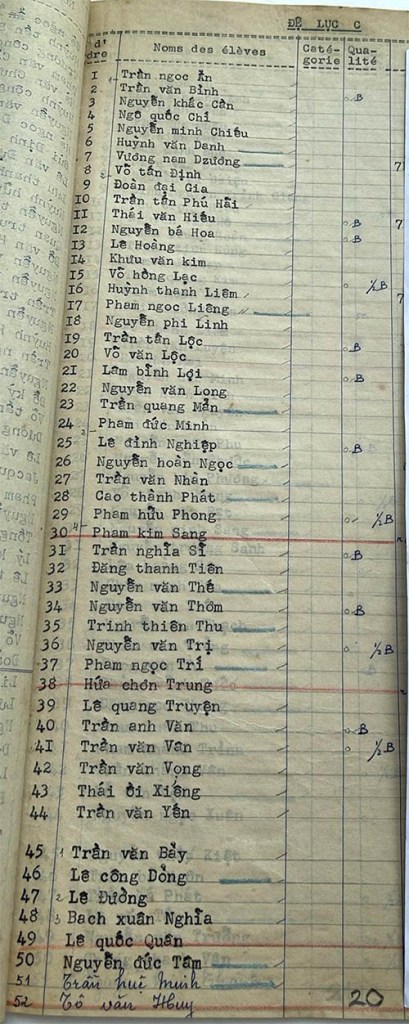 ĐỆ LỤC C
d' dre Noms des élèves Caté-gorie Qua-lité
1 Trần ngọc Ẩn
2 Trần văn Bình
3 Nguyễn khắc Cần B
4 Ngô quốc Chí
5 Nguyễn minh Chiếu
6 Huỳnh văn Danh
7 Vương nam Dzương
8 Võ tấn Định
9 Đoàn đại Gia
10 Trần tấn Phú Hải
11 Thái văn Hiếu B
12 Nguyễn bá Hoa B
13 Lê Hoàng
14 Khưu văn kim
15 Võ hồng Lạc ½B
16 Huỳnh thanh Liêm
17 Pham ngọc Liêng
18 Nguyễn phi Linh
19 Trần tấn Lộc B
20 Võ văn Lộc
21 Lâm bỉnh Lợi B
22 Nguyễn văn Long
23 Trần quang Mẫn
24 Pham đức Minh
25 Lê đình Nghiệp B
26 Nguyễn hoàn Ngọc
27 Trần văn Nhàn
28 Cao thành Phát
29 Phạm hữu Phong ½B
30 Pham kim Sang
31 Trần nghĩa Sĩ B
32 Đăng thanh Tiên
33 Nguyễn văn Thế
34 Nguyễn văn Thơm B
35 Trinh thiên Thu
36 Nguyễn văn Trị ½B
37 Pham ngọc Trí
38 Hứa chơn Trung
39 Lê quang Truyện
40 Trần anh Văn B
41 Trần văn Vân ½B
42 Trần văn Vọng
43 Thái ời Xiếng
44 Trần văn Yến
45 1 Trần văn Bảy
46 Lê công Dỏng
47 2 Lê Đường
48 3 Bach xuân Nghĩa
49 Lê quốc Quân
50 Nguyễn đức Tâm
51 Trần huệ Minh
52 Tô văn Huy
20